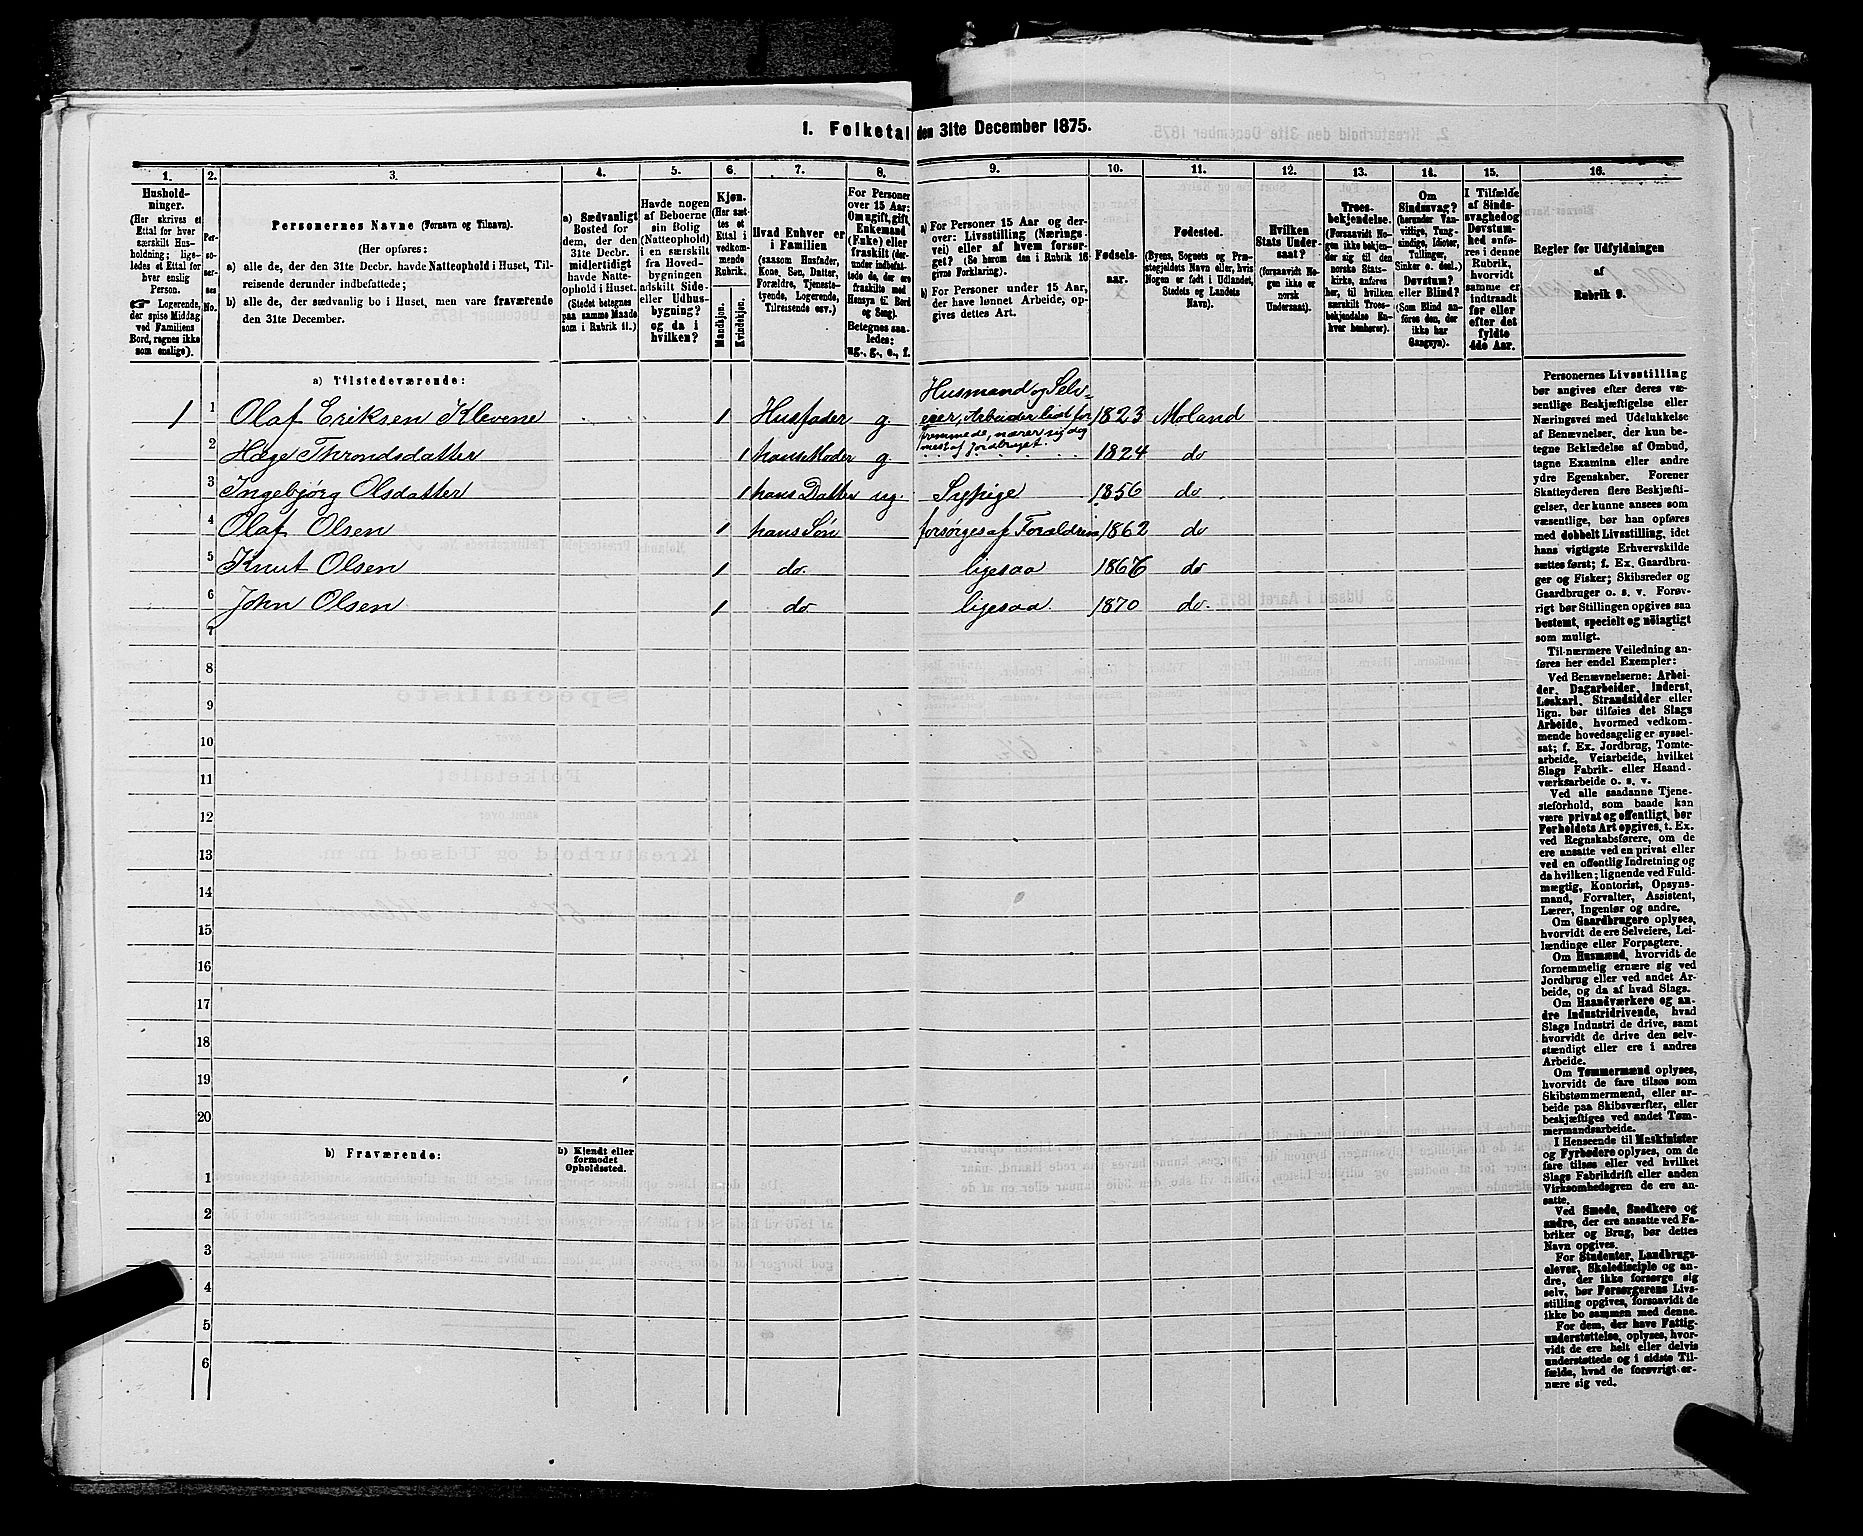 1. Folketal den 31te December 1875.
1. 2. 3. 4. 5. 6. 7. 8. 9. 10. 11. 12. 13. 14. 15. 16.
Hushold-
ninger.
(Her skrives et
Ettal for hver
særskilt Hus-
holdning; lige-
ledes et Ettal for
hver enslig
Person.
☞ Logerende,
der spise Middag
ved Familiens
Bord, regnes ikke
som enslige).
Per-
so-
ner-
nes
No.
Personernes Navne (Fornavn og Tilnavn).
(Her opføres:
a) alle de, der den 31te Decbr. havde Natteophold i Huset, Til-
reisende derunder indbefattede;
b) alle de, der sædvanlig bo i Huset, men vare fraværende
den 31te December.
a) Sædvanligt
Bosted for
dem, der den
31te Decbr.
midlertidigt
havde Natte-
ophold i Huset.
(Stedet betegnes
paa samme Maade
som i Rubrik 11.)
Havde nogen
af Beboerne
sin Bolig
(Natteophold)
i en særskilt
fra Hoved-
bygningen
adskilt Side-
eller Udhus-
bygning?
og da i
hvilken?
Kjøn.
(Her sæt-
tes et
Ettal i
vedkom-
mende
Rubrik.
Mandkjøn.
Kvindekjøn.
Hvad Enhver er
i Familien
(saasom Husfader,
Kone, Søn, Datter,
Forældre, Tjeneste-
tyende, Logerende,
Tilreisende osv.)
For Personer
over 15 Aar:
Om ugift, gift,
Enkemand
(Enke) eller
fraskilt (der-
under indbefat-
tede de, der ere
fraskilte med
Hensyn til Bord
og Seng).
Betegnes saa-
ledes:
ug., g., e., f.
a) For Personer 15 Aar og der-
over: Livsstilling (Nærings-
vei) eller af hvem forsør-
get? (Se herom den i Rubrik 16
gives Forklaring).
b) For Personer under 15 Aar,
der have lønnet Arbeide, op-
gives dettes Art.
Fødsels-
aar.
Fødested.
(Byens, Sognets og Præ-
stegjeldets Navn eller, hvis
Nogen er født i Udlandet,
Stedets og Landets
Navn).
Hvilken
Stats Under-
saat?
(forsaavidt No-
gen ikke er
norsk
Undersaat).
Troes-
bekjendelse.
(Forsaavidt No-
gen ikke bekjen-
der sig til den
norske Stats-
kirke, anføres
her, til hvilken
særskilt Troes-
bekjendelse En-
hver henhører).
Om
Sindssvag?
(herunder Van-
vittige, Tung-
sindige, Idioter,
Tullinger,
Sinker o. desl.)
Døvstum?
eller Blind?
(Som Blind an-
føres den, der
ikke har
Gangsyn).
I Tilfælde
af Sinds-
svaghed og
Døvstum-
hed anfø-
res i denne
Rubrik,
hvorvidt
samme er
indtraadt
før eller
efter det
fyldte
4de Aar.
Regler for Udfyldningen
af
Rubrik 9.
a) Tilstedeværende:
1 1 Olaf Eriksen Klevene 1 Husfader g. Husmand og Selv-
eier, Arbeider lidt for
fremmede, nærer sig dog
mest af Jordbruget. 1823 Moland
2 Hæge Throndsdatter 1 hans Moder g 1824 do
3 Ingebjörg Olsdatter 1 hans Datter ug. Sypige 1856 do
4 Olaf Olsen 1 hans Søn forsørges af Forældrene 1862 do
5 Knut Olsen 1 do. ligesaa 1867 do
6 John Olsen 1 do ligesaa 1870 do.
7
8
9
10
11
12
13
14
15
16
17
18
19
20
b) Fraværende: b) Kjendt eller
formodet
Opholdssted.
1
2
3
4
5
6
Personernes Livsstilling
bør angives efter deres væ-
sentlige Beskjæftigelse eller
Næringsvei med Udelukkelse
af Benævnelser, der kun be-
tegne Beklædelse af Ombud,
tagne Examina eller andre
ydre Egenskaber. Forener
Skatteyderen flere Beskjæfti-
gelser, der kunne ansees som
væsentlige, bør han opføres
med dobbelt Livsstilling, idet
hans vigtigste Erhvervskilde
sættes først; f. Ex. Gaardbru-
ger og Fisker; Skibsreder og
Gaardbruger o. s. v. Forøv-
rigt bør Stillingen opgives saa
bestemt, specielt og nöiagtigt
som muligt.
Til nærmere Veiledning an-
føres her endel Exempler:
Ved Benævnelserne: Arbei-
der, Dagarbeider, Inderst,
Løskarl, Strandsidder eller
lign. bør tilføies det Slags
Arbeide, hvormed vedkom-
mende hovedsagelig er syssel-
sat; f. Ex. Jordbrug, Tomte-
arbeide, Veiarbeide, hvilket
Slags Fabrik- eller Haand-
værksarbeide o. s. v.
Ved alle saadanne Tjene-
steforhold, som baade kan
være privat og offentligt, bør
Forholdets Art opgives, t. Ex.
ved Regnskabsførere, om de
ere ansatte ved en privat eller
ved en offentlig Indretning og
da hvilken; lignende ved Fuld-
mægtig, Kontorist, Opsyns-
mand, Forvalter, Assistent,
Lærer, Ingeniør og andre.
Om Gaardbrugere oplyses,
hvorvidt de ere Selveiere, Lei-
lændinge eller Forpagtere.
Om Husmænd, hvorvidt de
fornemmelig ernære sig ved
Jordbrug eller ved andet Ar-
beide, og da af hvad Slags.
Om Haandværkere og an-
dre Industridrivende, hvad
Slags Industri de drive, samt
hvorvidt de drive den selv-
stændigt eller ere i andres
Arbeide.
Om Tømmermænd oplyses,
hvorvidt de fare tilsøs som
Skibstømmermænd, eller ar-
beide paa Skibsværfter, eller
beskjæftiges ved andet Tøm-
mermandsarbeide.
I Henseende til Maskinister
og Fyrbødere oplyses, om de
fare tilsøs eller ved hvilket
Slags Fabrikdrift eller anden
Virksomhedsgren de ere an-
satte.
Ved Smede, Snedkere og
andre, der ere ansatte ved Fa-
briker og Brug, bør dettes
Navn opgives.
For Studenter, Landbrugs-
elever, Skoledisciple og an-
dre, der ikke forsørge sig
selv, bør Forsørgerens Livs-
stilling opgives, forsaavidt de
ikke bo sammen med denne.
For dem, der have Fattig-
understøttelse, oplyses, hvor-
vidt de ere helt eller delvis
understøttede og i sidste Til-
fælde, hvad de forøvrigt er-
nære sig ved.